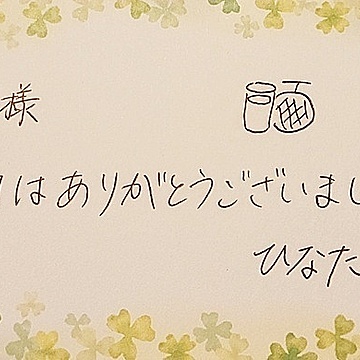 様
はありがとうございまし
ひなた